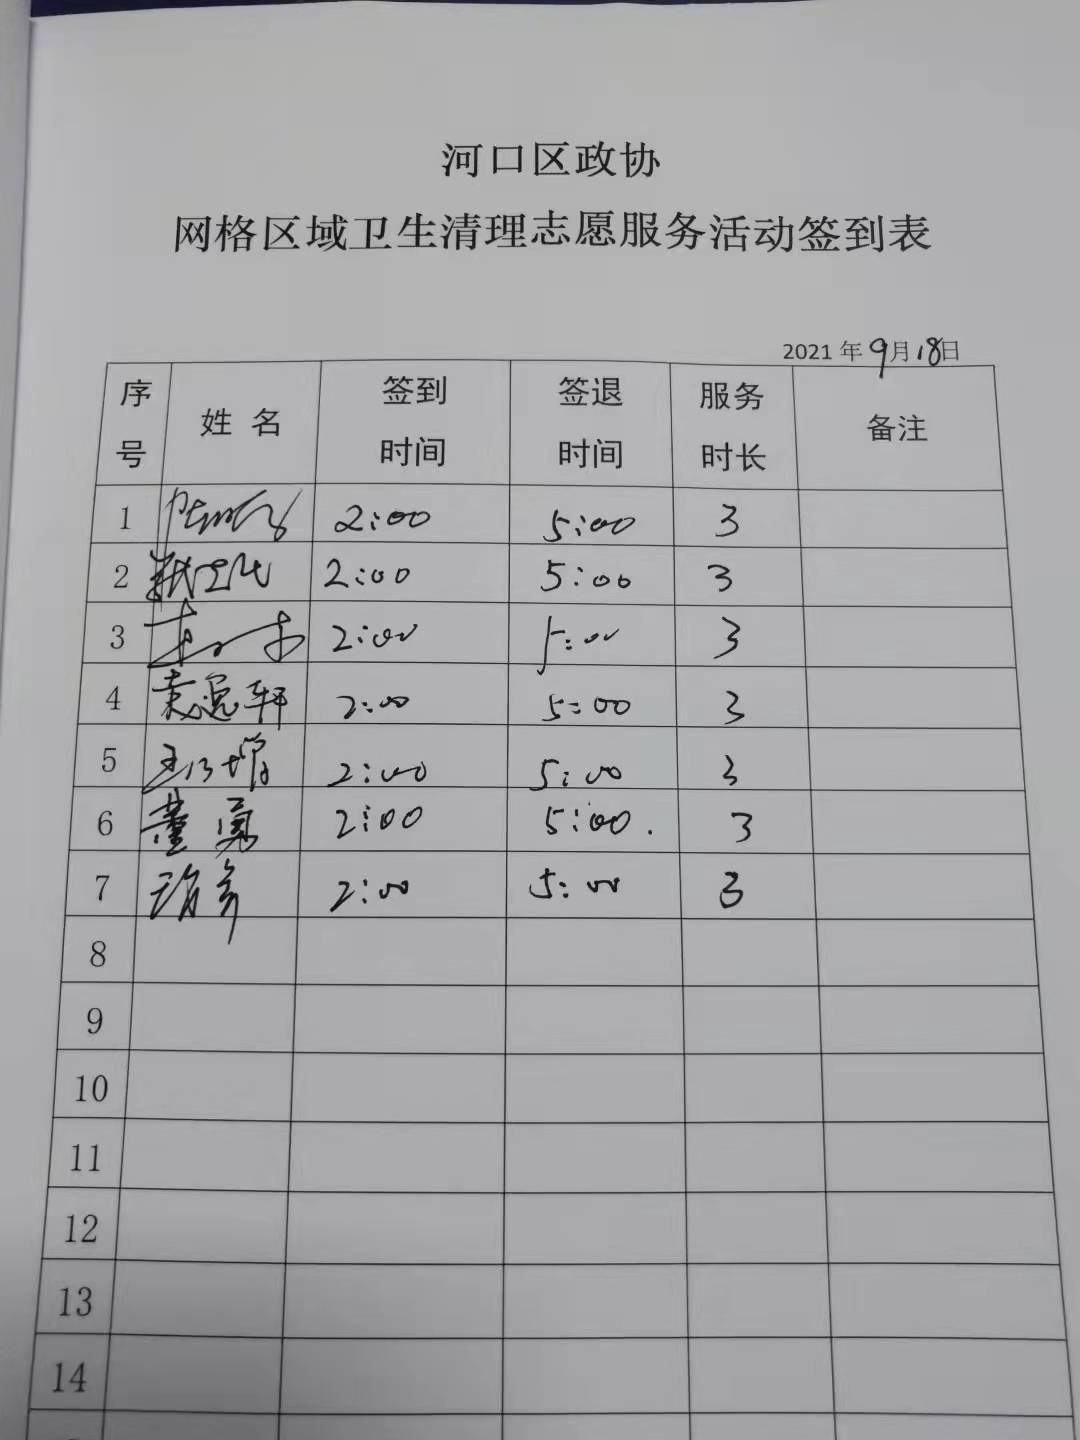 河口区政协
网格区域卫生清理志愿服务活动签到表
2021年9月18日
序号 姓名 签到时间 签退时间 服务时长 备注
1 2:00 5:00 3
2 2:00 5:00 3
3 2:00 5:00 3
4 袁逸轩 2:00 5:00 3
5 2:00 5:00 3
6 董勇 2:00 5:00. 3
7 2:00 5:00 3
8
9
10
11
12
13
14